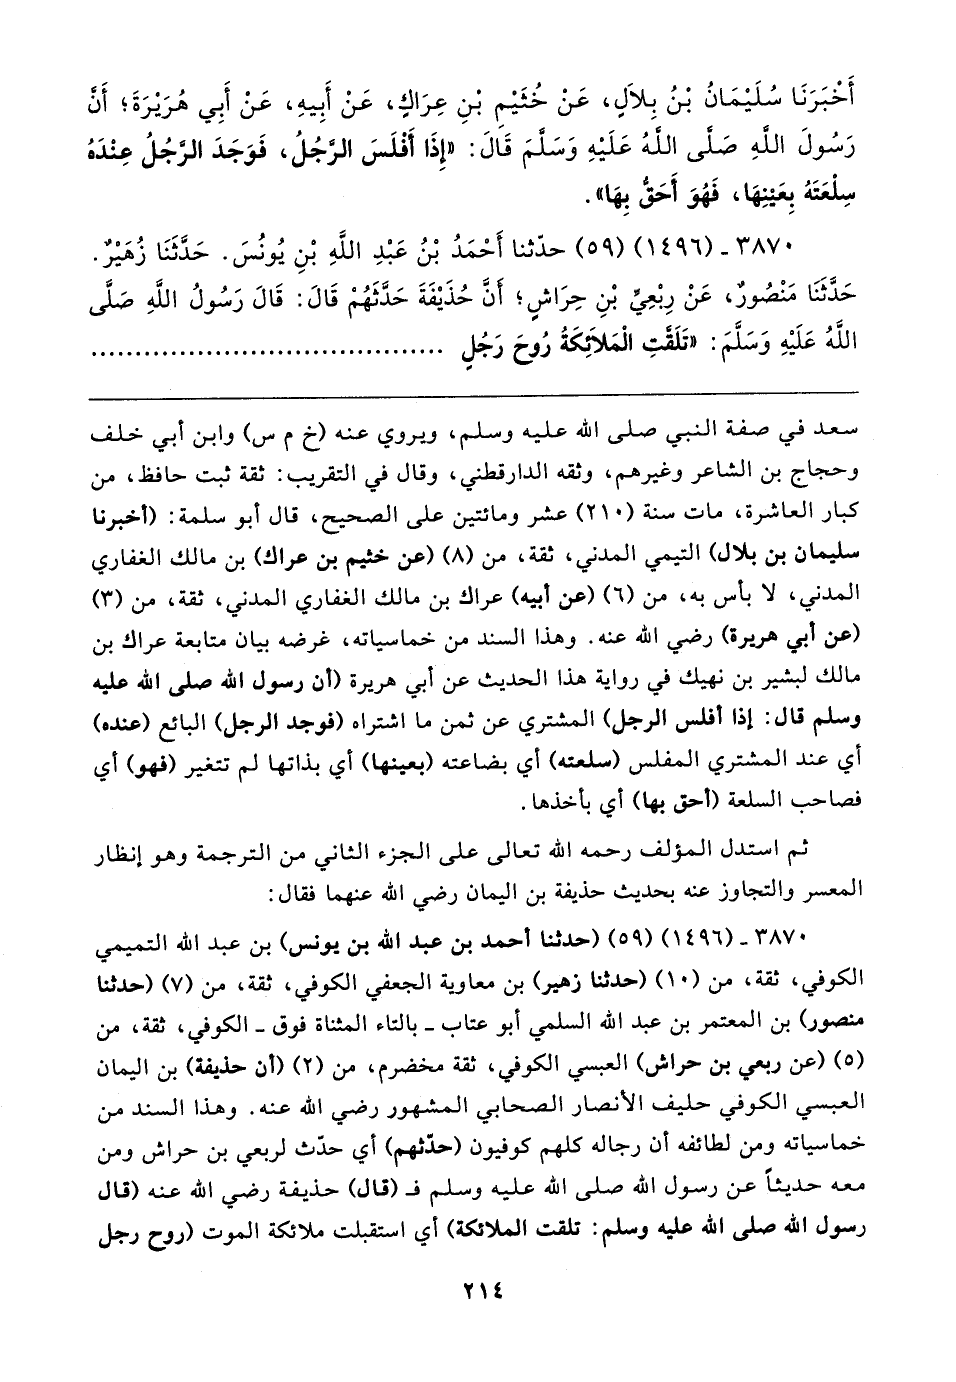 أَخْبَرَنَا سُلَيْمَانُ بْنُ بِلاَلٍ، عَنْ خُثَيْمِ بْنِ عِرَاكٍ، عَنْ أَبِيهِ، عَنْ أَبِي هُرَيْرَةَ؛ أَنَّ
رَسُولَ اللَّهِ صَلَّى اللَّهُ عَلَيْهِ وَسَلَّمَ قَالَ: «إِذَا أَفْلَسَ الرَّجُلُ، فَوَجَدَ الرَّجُلُ عِنْدَهُ
سِلْعَتَهُ بِعَيْنِهَا، فَهُوَ أَحَقُّ بِهَا».
٣٨٧٠ - (١٤٩٦) (٥٩) حدّثنا أَحْمَدُ بْنُ عَبْدِ اللَّهِ بْنِ يُونُسَ. حَدَّثَنَا زُهَيْرٌ.
حَدَّثَنَا مَنْصُورٌ، عَنْ رِبْعِيِّ بْنِ حِرَاشٍ؛ أَنَّ حُذَيْفَةَ حَدَّثَهُمْ قَالَ: قَالَ رَسُولُ اللَّهِ صَلَّى
اللَّهُ عَلَيْهِ وَسَلَّمَ: «تَلَقَّتِ الْمَلاَئِكَةُ رُوحَ رَجُلٍ ........................................
سعد في صفة النبي صلى الله عليه وسلم، ويروي عنه (خ م س) وابن أبي خلف
وحجاج بن الشاعر وغيرهم، وثقه الدارقطني، وقال في التقريب: ثقة ثبت حافظ، من
كبار العاشرة، مات سنة (٢١٠) عشر ومائتين على الصحيح، قال أبو سلمة: (أخبرنا
سليمان بن بلال) التيمي المدني، ثقة، من (٨) (عن خثيم بن عراك) بن مالك الغفاري
المدني، لا بأس به، من (٦) (عن أبيه) عراك بن مالك الغفاري المدني، ثقة، من (٣)
(عن أبي هريرة) رضي الله عنه. وهذا السند من خماسياته، غرضه بيان متابعة عراك بن
مالك لبشير بن نهيك في رواية هذا الحديث عن أبي هريرة (أن رسول الله صلى الله عليه
وسلم قال: إذا أفلس الرجل) المشتري عن ثمن ما اشتراه (فوجد الرجل) البائع (عنده)
أي عند المشتري المفلس (سلعته) أي بضاعته (بعينها) أي بذاتها لم تتغير (فهو) أي
فصاحب السلعة (أحق بها) أي بأخذها.
ثم استدل المؤلف رحمه الله تعالى على الجزء الثاني من الترجمة وهو إنظار
المعسر والتجاوز عنه بحديث حذيفة بن اليمان رضي الله عنهما فقال:
٣٨٧٠ - (١٤٩٦) (٥٩) (حدثنا أحمد بن عبد الله بن يونس) بن عبد الله التميمي
الكوفي، ثقة، من (١٠) (حدثنا زهير) بن معاوية الجعفي الكوفي، ثقة، من (٧) (حدثنا
منصور) بن المعتمر بن عبد الله السلمي أبو عتاب - بالتاء المثناة فوق - الكوفي، ثقة، من
(٥) (عن ربعي بن حراش) العبسي الكوفي، ثقة مخضرم، من (٢) (أن حذيفة) بن اليمان
العبسي الكوفي حليف الأنصار الصحابي المشهور رضي الله عنه. وهذا السند من
خماسياته ومن لطائفه أن رجاله كلهم كوفيون (حدّثهم) أي حدّث لربعي بن حراش ومن
معه حديثاً عن رسول الله صلى الله عليه وسلم فـ (قال) حذيفة رضي الله عنه (قال
رسول الله صلى الله عليه وسلم: تلقت الملائكة) أي استقبلت ملائكة الموت (روح رجل
٢١٤